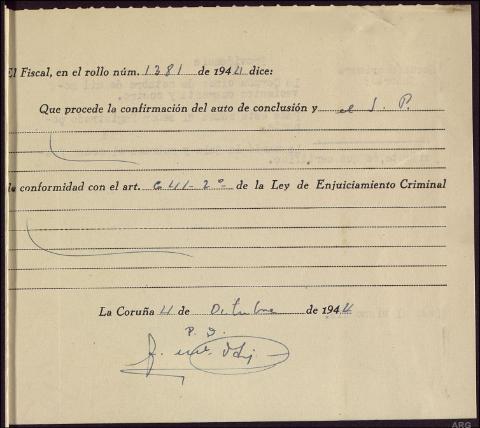 El Fiscal, en el rollo núm. 1381 de 1944 dice:
Que procede la confirmación del auto de conclusión y el S. P.
de conformidad con el art. 641-2º- de la Ley de Enjuiciamiento Criminal
La Coruña 4 de Octubre de 1944
P. D.
ARG